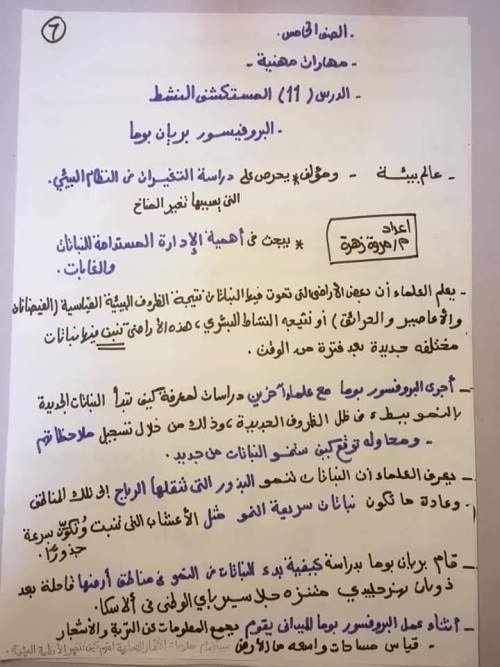 ٦
الصف الخامس.
- مهارات مهنية -
- الدرس (11) المستكشف النشط
البروفيسور بريان بوما.
- عالم بيئة - ومؤلف * يحرص على دراسة التغيرات فى النظام البيئي.
التى يسببها تغير المناخ
اعداد
م/مروة زهرة
* يبحث فى أهمية الإدارة المستدامة للنباتات
والغابات.
- يعلم العلماء أن بعض الأراضى التى تموت فيها النباتات نتيجة الظروف البيئية القياسية (الفيضانات
والأعاصير والحرائق) أو نتيجه النشاط البشري، هذه الأراضى تنبت فيها نباتات
مختلفه جديدة بعد فترة من الوقت.
- أجرى البروفسور بوما مع علماء آخرين دراسات لمعرفة كيف تبدأ النباتات الجديدة
بالنمو ببطء فى ظل الظروف الجديدة، وذلك من خلال تسجيل ملاحظاتهم
- ومحاوله توقع كيف ستنمو النباتات من جديد.
- يعرف العلماء أن النباتات تنمو البذور التى تنقلها الرياح إلى تلك المناطق
وعادة ما تكون نباتات سريعة النمو مثل الأعشاب التى تنبت وتكوّن سرعة
جذورها.
- قام بريان بوما بدراسة كيفية بدء النباتات فى النمو فى مناطق أرضها قاحلة بعد
ذوبان نهر جليدي متنزه جلاسير باي الوطنى فى ألاسكا.
- أثناء عمل البروفسور بوما الميدانى يقوم بجمع المعلومات عن التربة والأشجار
- قياس مساحات واسعه من الأرض